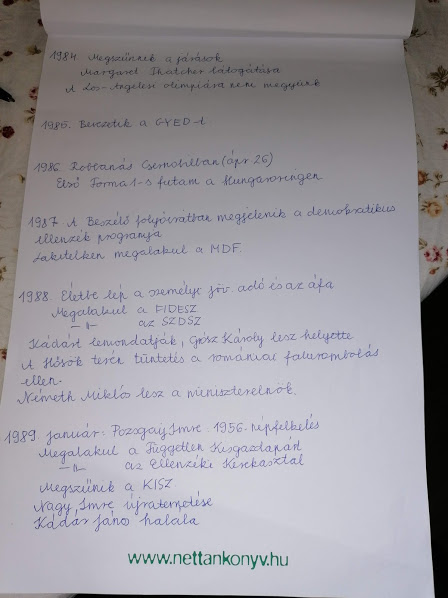 1984. Megszűnnek a járások
Margaret Thatcher látogatása
A Los-Angelesi olimpiára nem megyünk
1985. Bevezetik a GYED-t
1986. Robbanás Csernobilban (ápr 26)
Első Forma 1-s futam a Hungaroringen
1987. A Beszélő folyóiratban megjelenik a demokratikus
ellenzék programja
Lakitelken megalakul a MDF.
1988. Életbe lép a személyi jöv. adó és az áfa
Megalakul a FIDESZ
-"- az SZDSZ
Kádárt lemondatják, Grósz Károly lesz helyette
A Hősök terén tüntetés a romániai falurombolás
ellen.
Németh Miklós lesz a miniszterelnök.
1989. január: Pozsgay Imre: 1956. népfelkelés
Megalakul a Független Kisgazdapárt
-"- az Ellenzéki Kerekasztal
Megszűnik a KISZ
Nagy Imre újratemetése
Kádár János halála
www.nettankonyv.hu